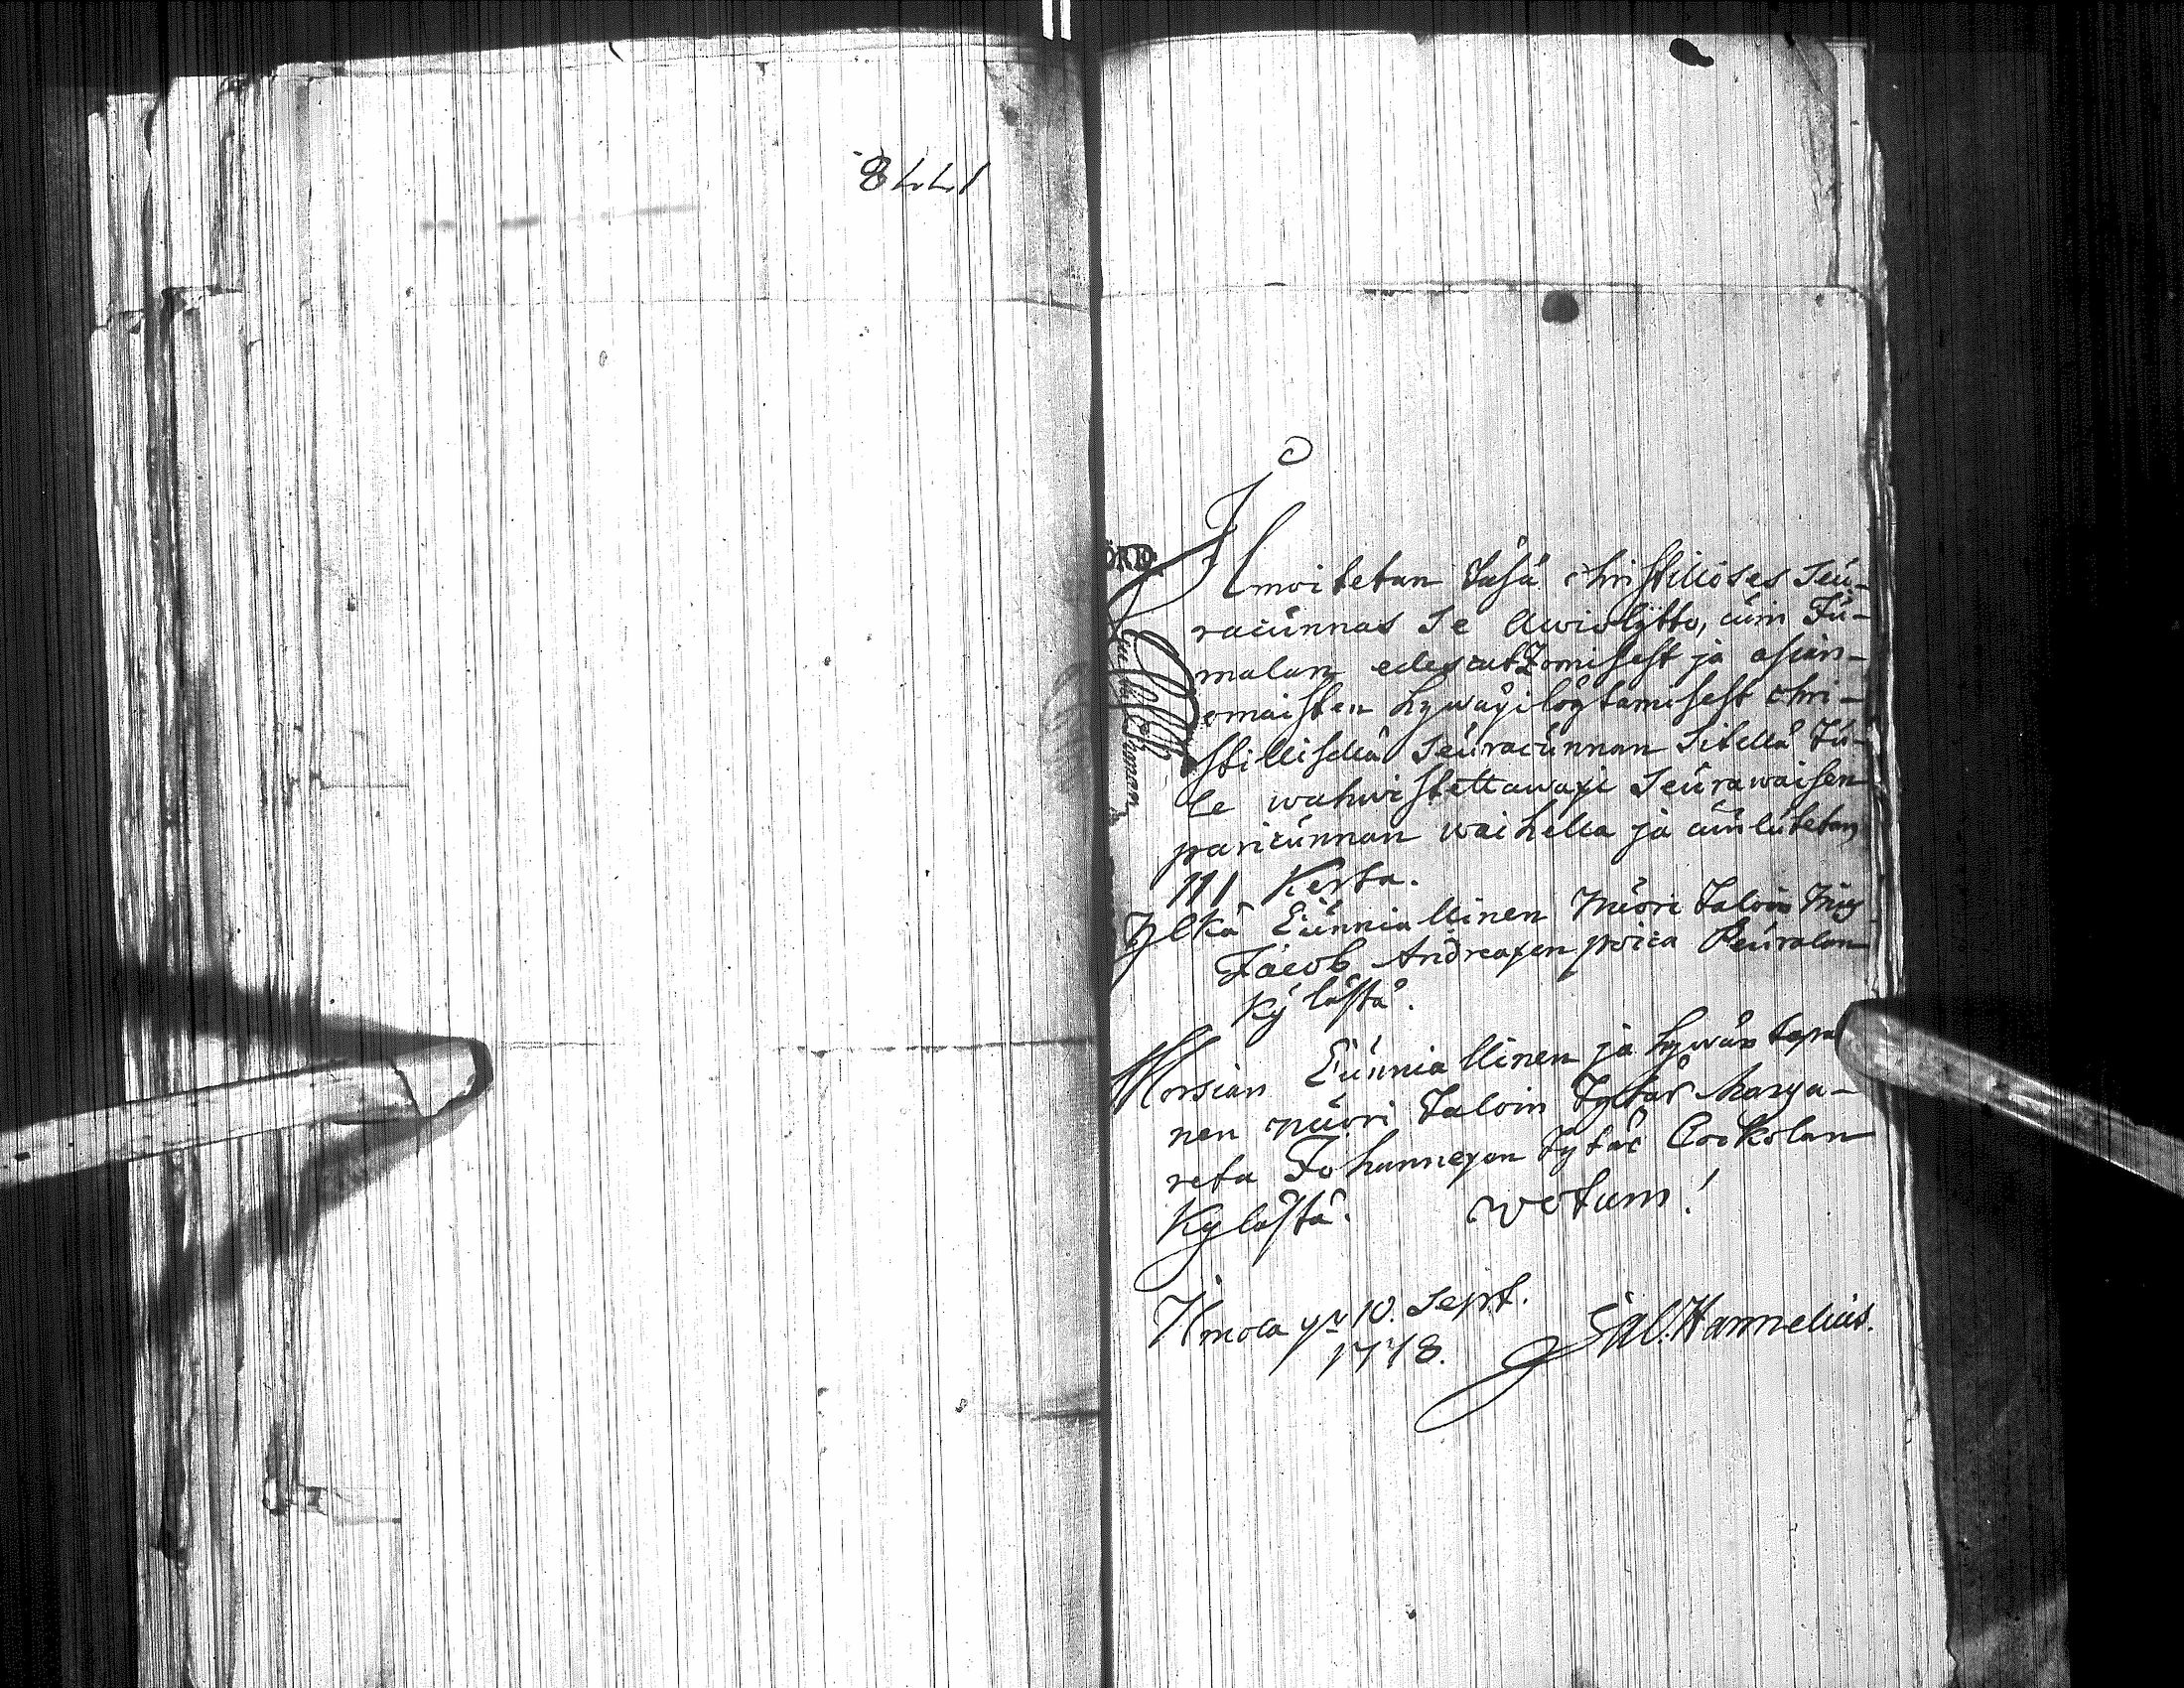 1778
Ilmoitetan täsä christilises seu-
racunnas se Awiolijtto, cuin Ju-
malan edescatzomisest ja asian-
omaisten hywäxilöytamisest chri-
stillisellä seuracunnan sitellä tu-
le wahwistettawaxi seurawaisen
paricunnan waihella ja cuulutetan
III Kerta.
Ylkä Cunniallinen nuori talon mies
Jacob Andreaxen poica Peuralan
Kylästä.
Morsian Cunniallinen ja hywän tapai
nen nuori taloin tytär Marga-
reta Johannexen tytär Cockolan
Kylästä. votum!
Ilmola 10. Sept.
1778. Sal. Hannelius.